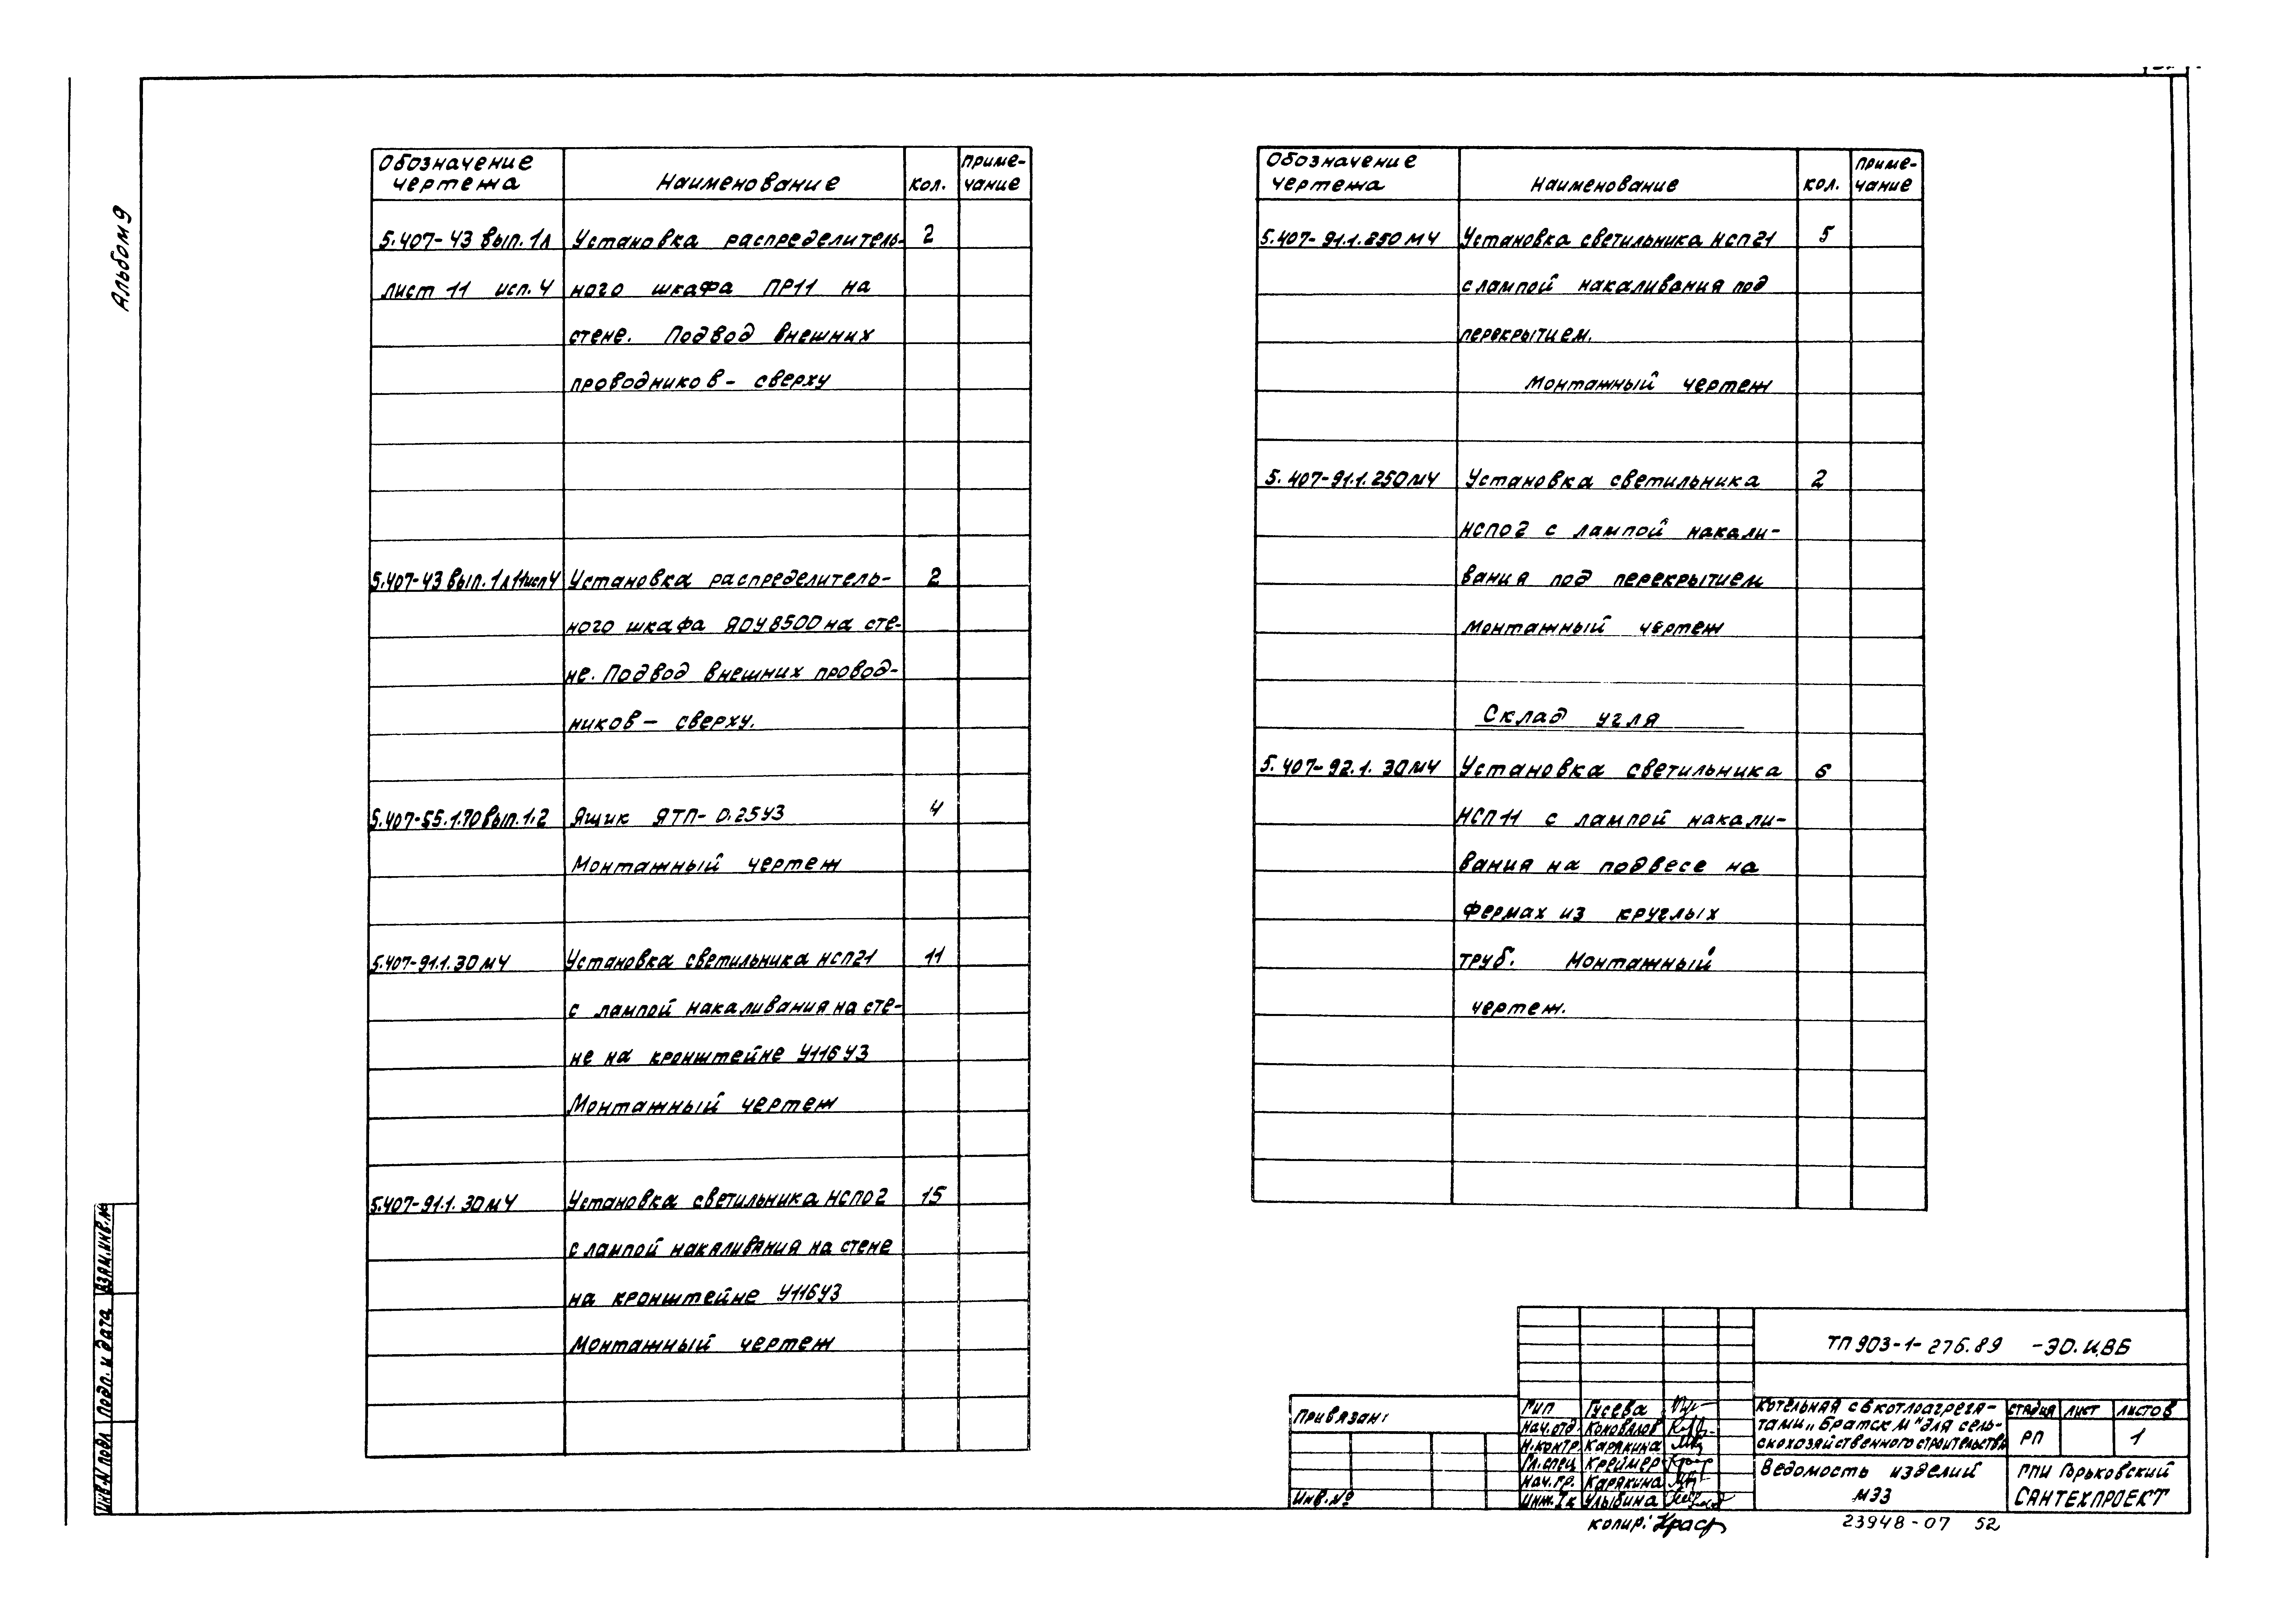 Альбом 9
Обозначение чертежа Наименование кол. Приме-чание
5.407-43 вып.1л Установка распределитель- 2
лист 11 исп.4 ного шкафа ПР11 на
стене. Подвод внешних
проводников - сверху
5.407-43 вып.1л11исп4 Установка распределитель- 2
ного шкафа ЯОУ8500 на сте-
не. Подвод внешних провод-
ников - сверху.
5.407-55.1.70 вып.1.2 Ящик ЯТП-0.25У3 4
Монтажный чертеж
5.407-91.1.30МЧ Установка светильника НСП21 11
с лампой накаливания на сте-
не на кронштейне У116У3
Монтажный чертеж
5.407-91.1.30МЧ Установка светильника НСП02 15
с лампой накаливания на стене
на кронштейне У116У3
Монтажный чертеж
Обозначение чертежа Наименование кол. Приме-чание
5.407-91.1.250МЧ Установка светильника НСП21 5
с лампой накаливания под
перекрытием.
Монтажный чертеж
5.407-91.1.250МЧ Установка светильника 2
НСП02 с лампой накали-
вания под перекрытием
Монтажный чертеж
Склад угля
5.407-92.1.30МЧ Установка светильника 6
НСП11 с лампой накали-
вания на подвесе на
фермах из круглых
труб. Монтажный
чертеж.
Взам.инв.№
Подп. и дата
Инв.№ подл
Привязан:
Инв.№
ТП 903-1-276.89 -ЭО.ИВБ
ГИП Гусева
Нач.отд. Коновалов
Н.контр. Карякина
Гл.спец Креймер
Нач.гр. Карякина
Инж.Iк Улыбина
Котельная с 8 котлоагрега-
тами "Братск М" для сель-
скохозяйственного строительства
стадия лист листов
РП 1
Ведомость изделий
МЭЗ
ГПИ Горьковский
САНТЕХПРОЕКТ
копир:
23948-07 52